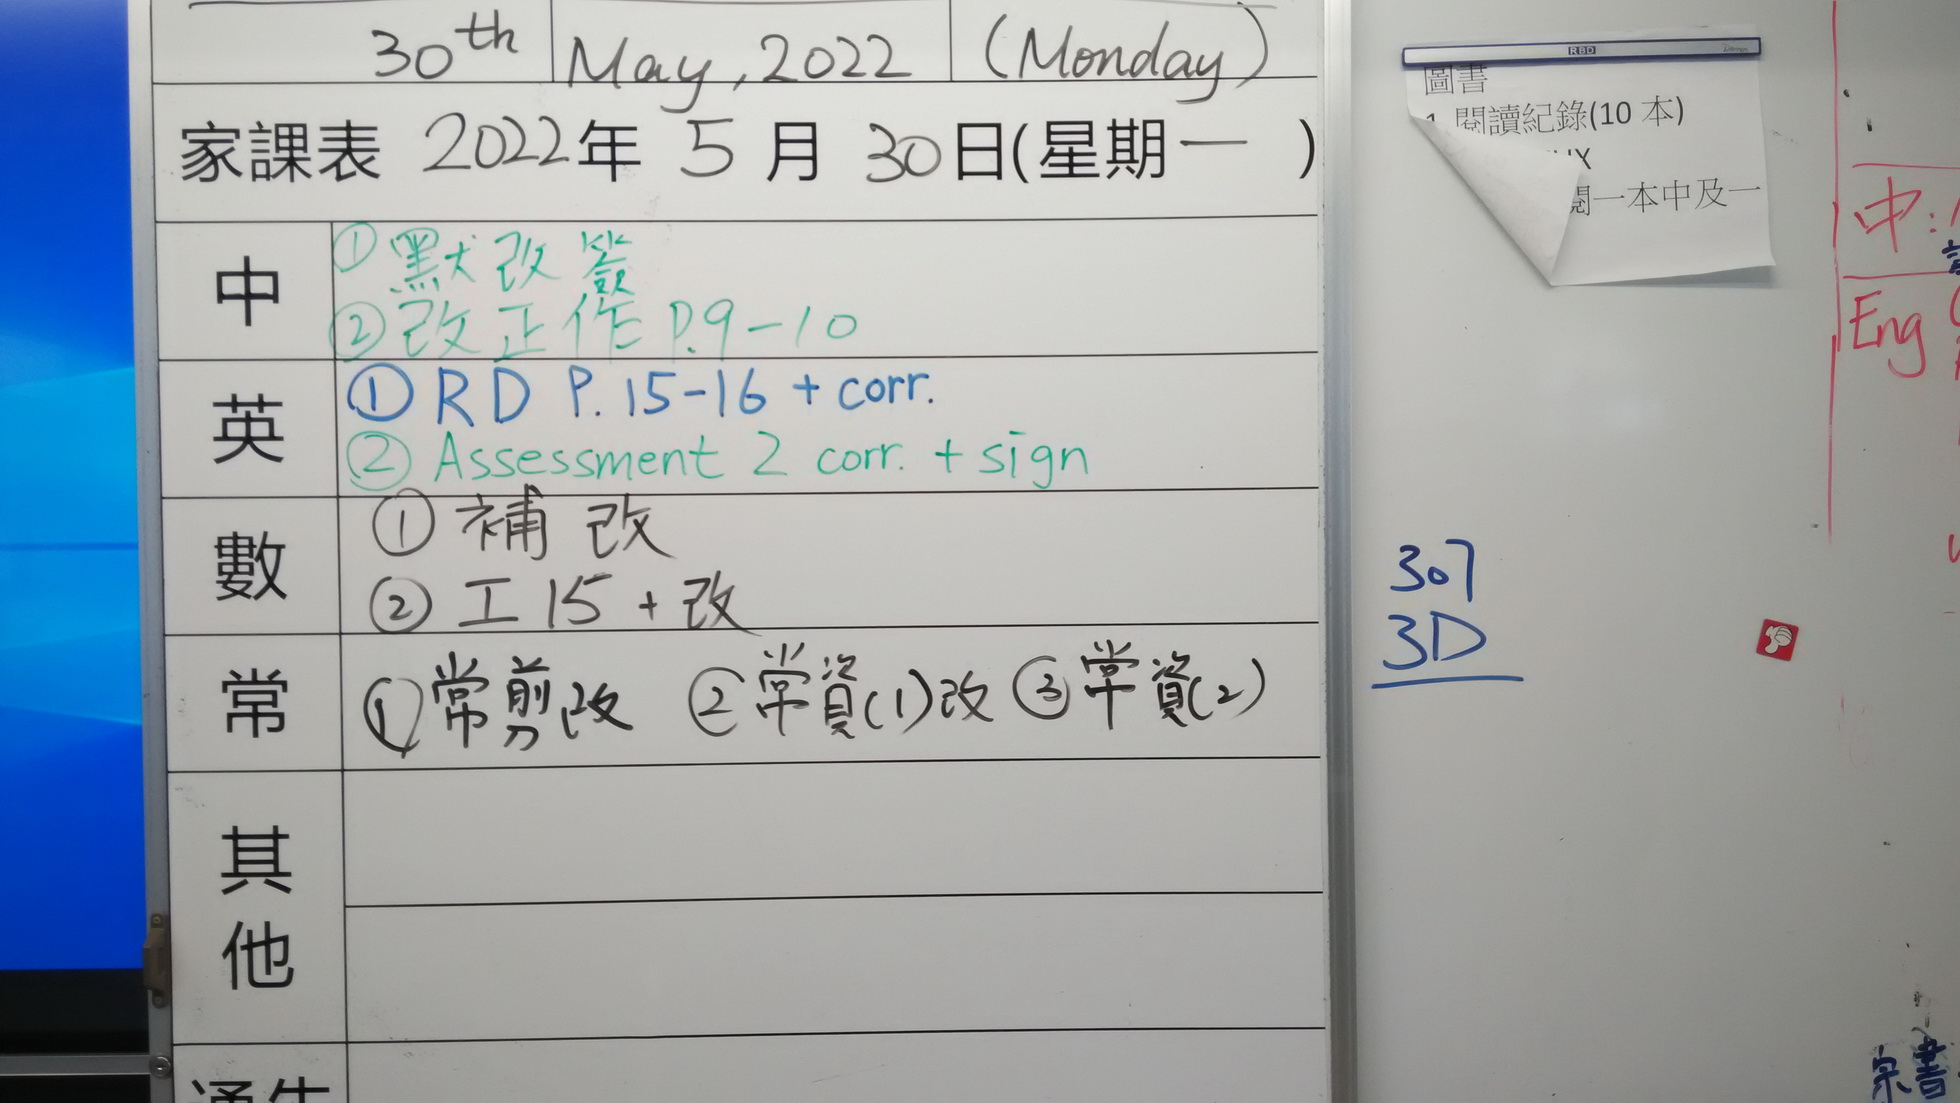 30th May, 2022 (Monday)
家課表 2022年 5月 30日(星期一 )
中
① 默改簽
② 改正作 P.9-10
英
① RD P. 15-16 + corr.
② Assessment 2 corr. + sign
數
① 補改
② 工15 + 改
常
① 常剪改 ② 常資(1)改 ③ 常資(2)
其他
通告
RBD
圖書
1. 閱讀紀錄(10 本)
閱一本中及一
307
3D
中:
Eng
家書